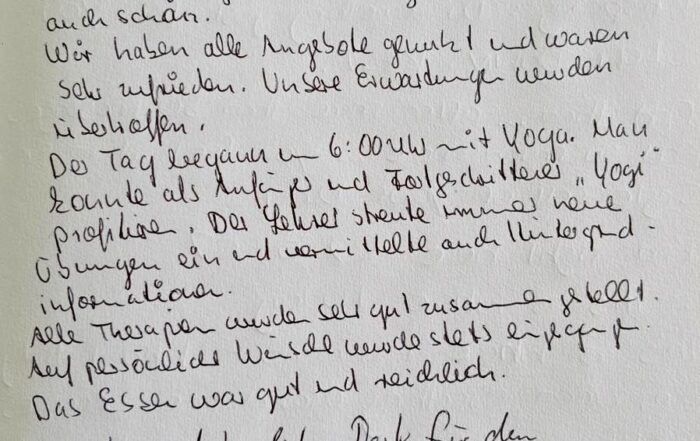 auch schön.
Wir haben alle Angebote genutzt und waren
sehr zufrieden. Unsere Erwartungen wurden
übertroffen.
Der Tag begann um 6:00 Uhr mit Yoga. Man
konnte als Anfänger und Fortgeschrittener „Yogi"
profitieren. Der Lehrer streute immer neue
Übungen ein und vermittelte auch Hintergrund-
informationen.
Alle Therapien wurden sehr gut zusammen gestellt.
Auf persönliche Wünsche wurde stets eingegangen.
Das Essen war gut und reichlich.
Dank für den